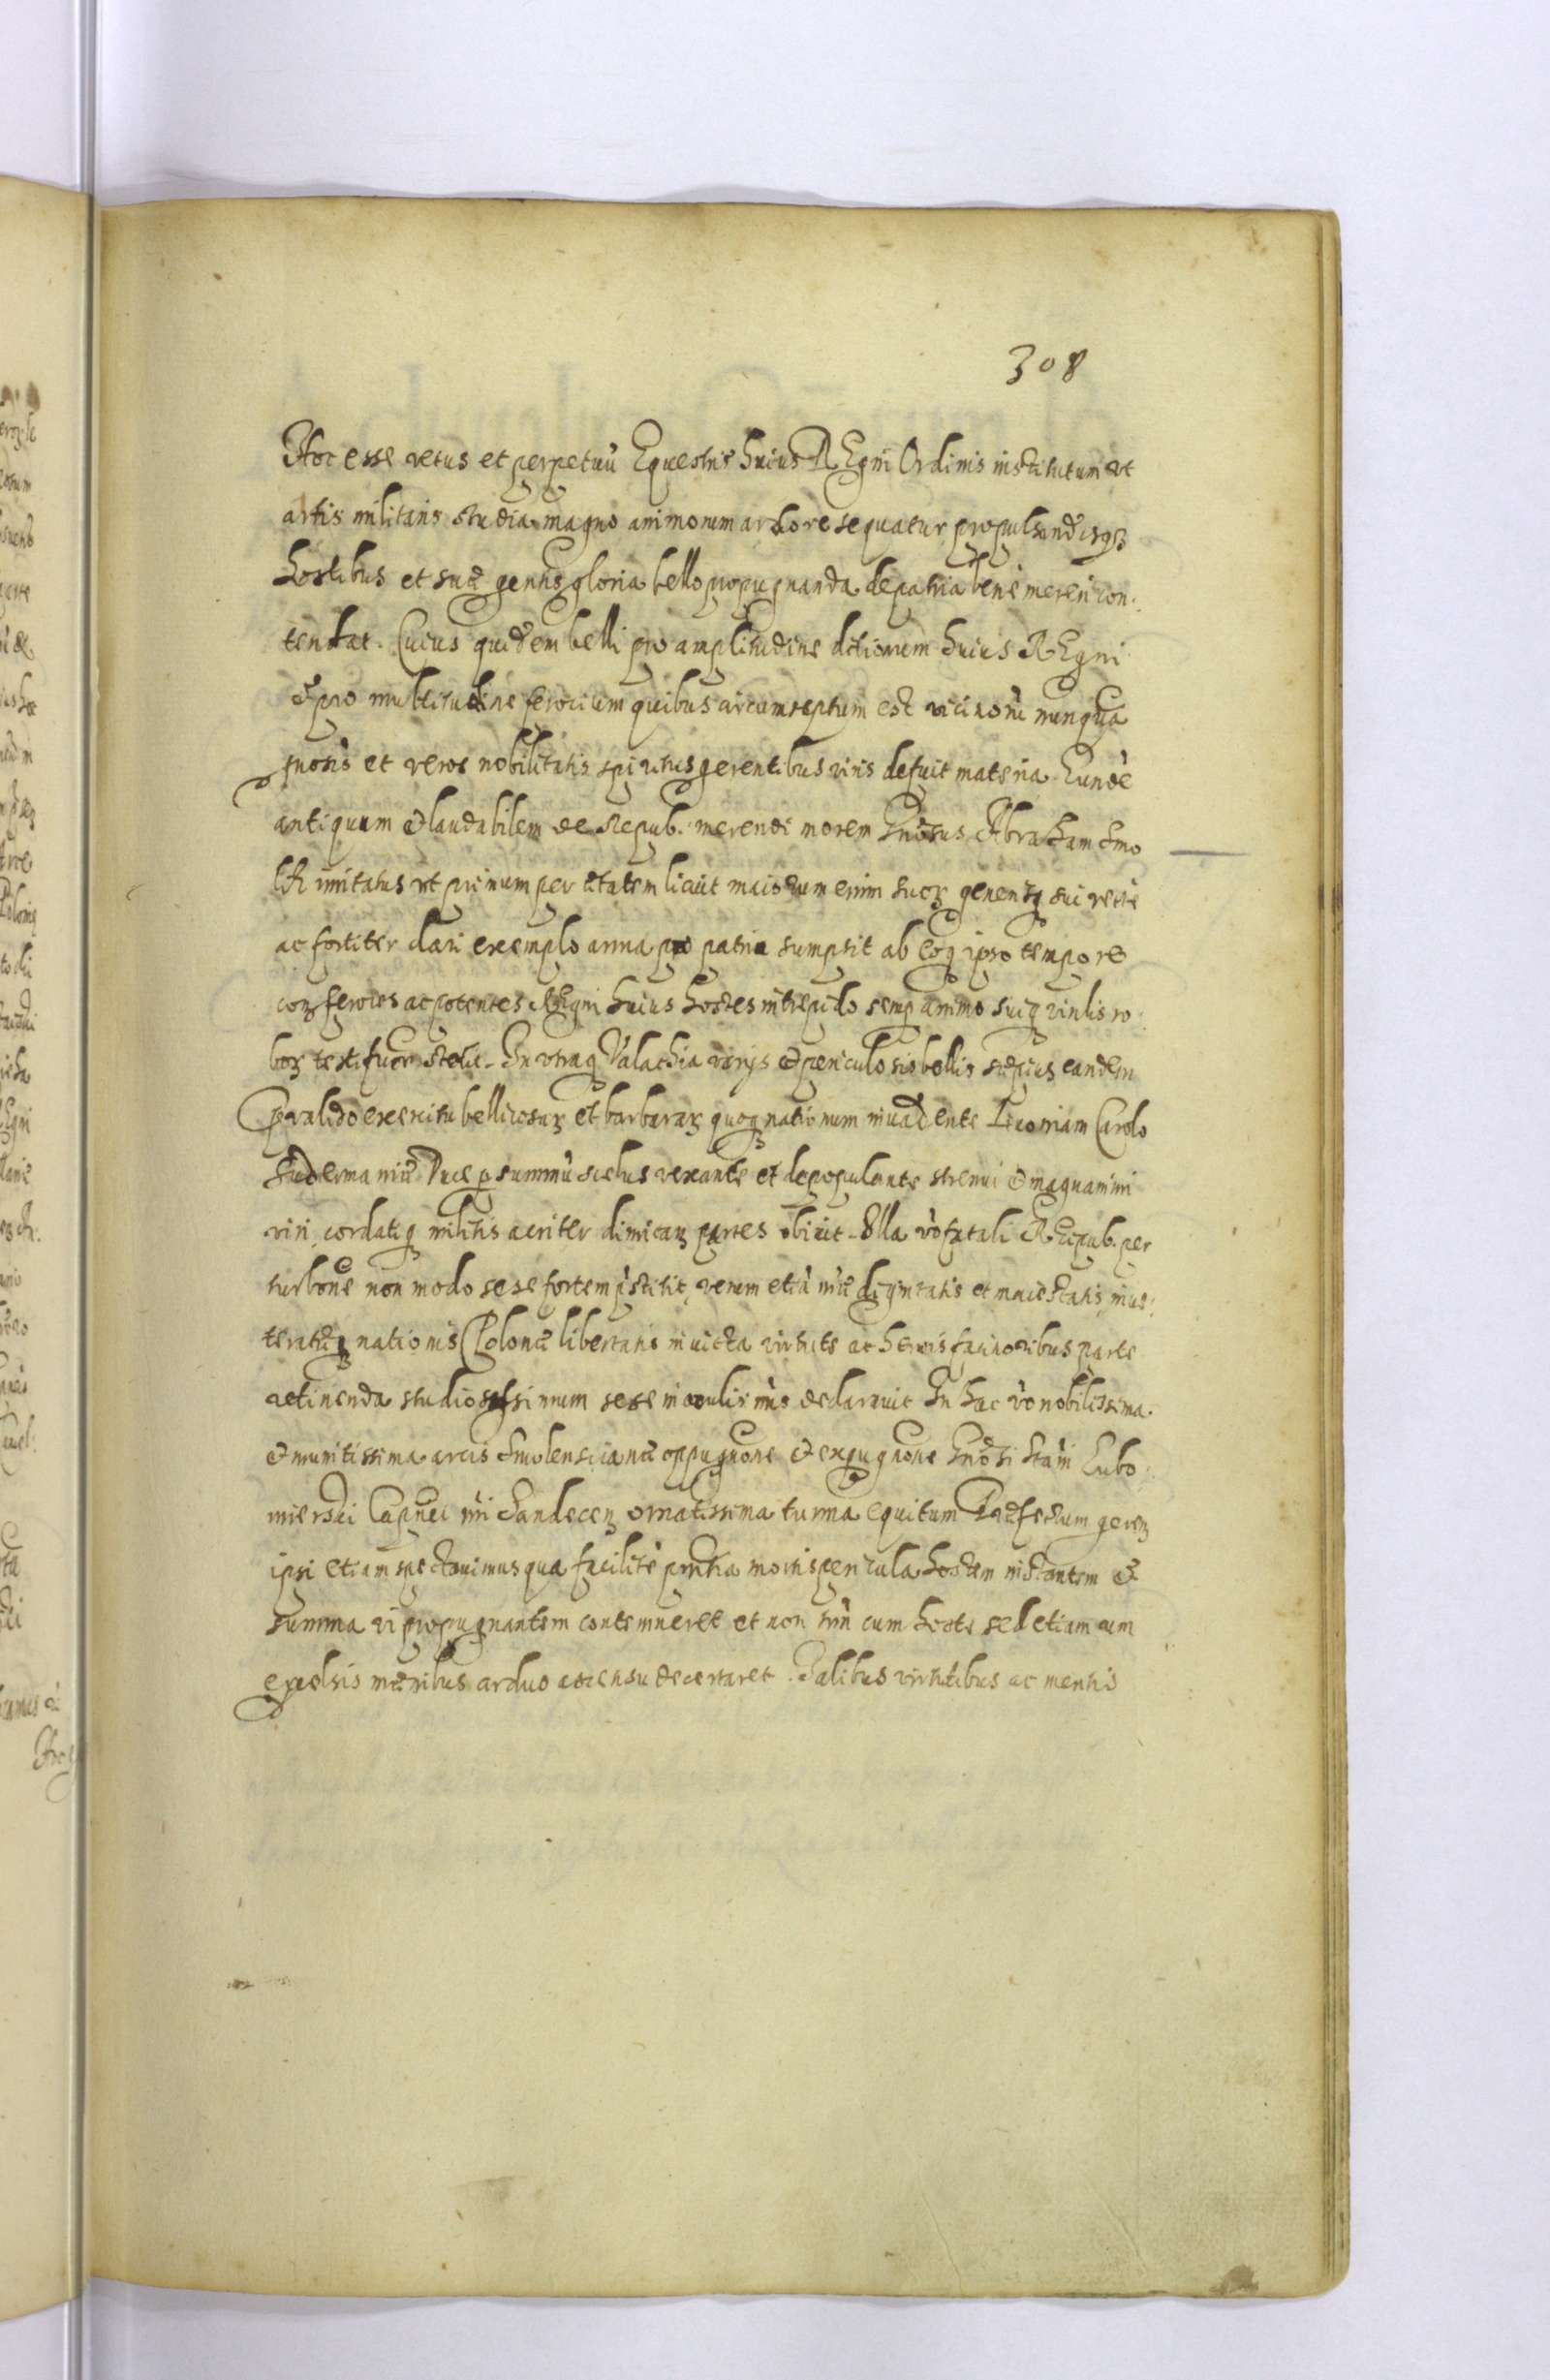 308
Hoc esse vetus et perpetuũ Equestris huius REgni Ordinis institutum ut
artis militaris studia magno animorum ardore sequatur propulsandisqȝ
hostibus et suæ gentis gloria bello propugnanda de patria benè mereri con-
tendat. Cuius quidem belli pro amplitudine ditionum huius REgni
et pro multitudine ferocium quibus circumseptum est vicinorũ nunquã
gnosis et veros nobilitatis spiritus gerentibus viris defuit materia. Eundẽ
antiquum et laudabilem de Repub. merendi morem Gnosus Abraham Smo
lik imitatus ut primum per ætatem licuit maiorum enim suorȝ generisqȝ sui rectè
ac fortiter clari exemplo arma pro patria sumpsit ab eoqȝ ipso tempore
contȝ feroces ac potentes REgni huius hostes intrepido semp animo suiqȝ virilis ro-
boȝ In utraqȝ Valachia varijs et periculosis bellis sæpius eandem
prævalido exercitu bellicosarȝ et barbararȝ quoqȝ nationum invadente Livoniam Carolo
Sudermaniæ Duce p summũ scelus vexante et depopulante strenui et magnanimi
viri, cordatiqȝ militis acriter dimicanȝ partes obivit. Illa vò fatali REipub. per
turbone non modo sese fortem pstitit, verum etiã nræ dignitatis et maiestatis, inve-
teratæqȝ nationis Polonæ libertatis invicta virtute ac herois facinoribus parte
retinenda studiosissimum sese in oculis nris declaravit In hac vò nobilissima
et munitissima arcis Smolenscianæ oppugnone et expugnone Gnosi Stani Lubo
mierski Capnei nri Sandecenȝ ornatissima turma equitum Præfectum gerenȝ
ipsi etiam spectavimus qua facilitè pntia mortis pericula hostem instantem et
summa vi propugnantem contemneret et non tm cum hoste sed etiam cum
excelsis mænibus arduo ascensu decertaret. Talibus virtutibus ac meritis